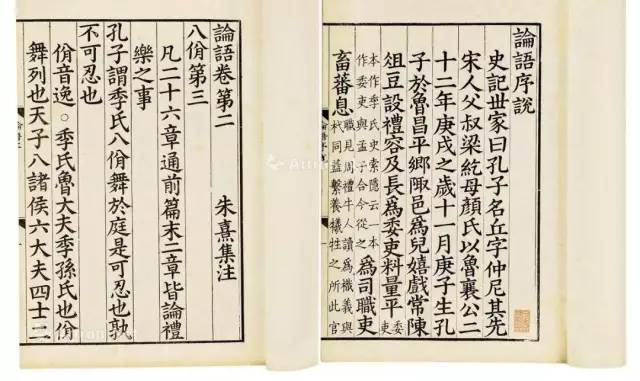 論語序說
史記世家曰孔子名丘字仲尼其先
宋人父叔梁紇母顏氏以魯襄公二
十二年庚戌之歲十一月庚子生孔
子於魯昌平鄉陬邑爲兒嬉戲常陳
俎豆設禮容及長爲委吏料量平委吏
本作季氏史索隱云一本作委吏與孟子合今從之爲司職吏
畜蕃息職見周禮牛人讀爲樴義與杙同蓋繫養犧牲之所此官
論語卷第二 朱熹集注
八佾第三
凡二十六章通前篇末二章皆論禮
樂之事
孔子謂季氏八佾舞於庭是可忍也孰
不可忍也
佾音逸○季氏魯大夫季孫氏也佾
舞列也天子八諸侯六大夫四士二